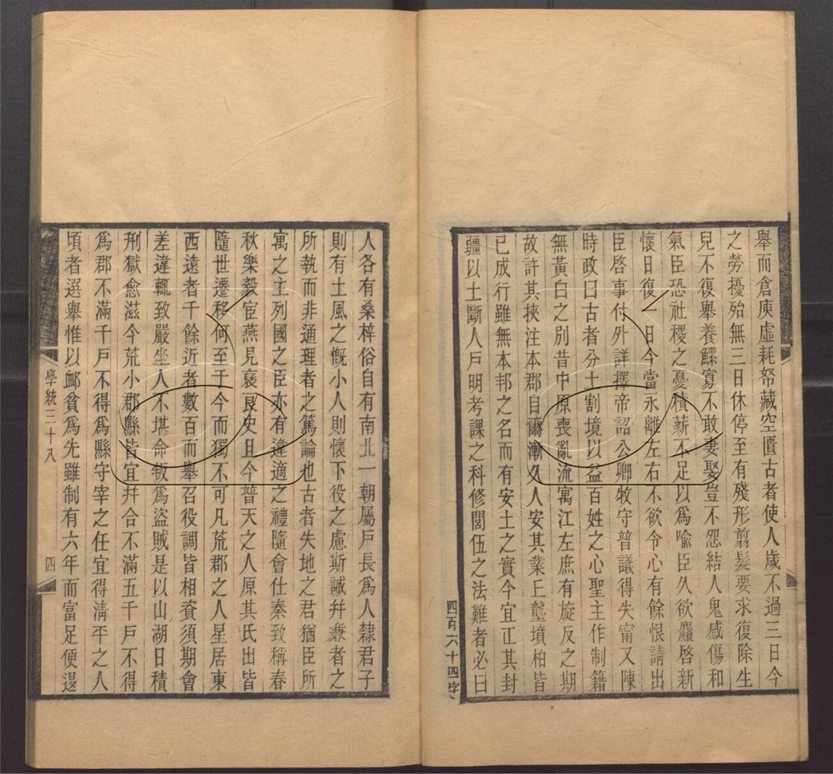 舉而倉庾虛耗帑藏空匱古者使人歲不過三日今
之勞擾殆無三日休停至有殘形剪髮要求復除生
兒不復舉養鰥寡不敢妻娶豈不怨結人鬼感傷和
氣臣恐社稷之憂積薪不足以爲喻臣久欲麤啓新
懷日復一日今當永離左右不欲令心有餘恨請出
臣啓事付外詳擇帝詔公卿牧守普議得失甯又陳
時政曰古者分土割境以益百姓之心聖主作制籍
無黃白之別昔中原喪亂流寓江左庶有旋反之期
故許其挾注本郡自爾漸久人安其業丘壟墳柏皆
已成行雖無本邦之名而有安土之實今宜正其封
疆以土斷人戸明考課之科修閭伍之法難者必曰
四百六十四字
人各有桑梓俗自有南北一朝屬戸長爲人隸君子
則有土風之慨小人則懷下役之慮斯誠幷兼者之
所執而非通理者之篤論也古者失地之君猶臣所
寓之主列國之臣亦有違適之禮隨會仕秦致稱春
秋樂毅宦燕見褒良史且今普天之人原其氏出皆
隨世遷移何至于今而獨不可凡荒郡之人星居東
西遠者千餘近者數百而舉召役調皆相資須期會
差違輒致嚴坐人不堪命叛爲盜賊是以山湖日積
刑獄愈滋今荒小郡縣皆宜幷合不滿五千戸不得
爲郡不滿千戸不得爲縣守宰之任宜得淸平之人
頃者選舉惟以䘏貧爲先雖制有六年而富足便退
學統三十八
四